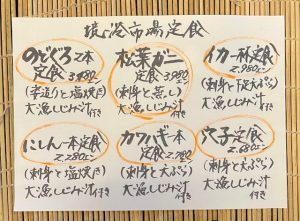 境港市場定食
のどぐろ2本
定食 3,480
(煮造りと塩焼き)
大漁しじみ汁付き
松葉ガニ
定食 3,980
(刺身と蒸し)
大漁しじみ汁付き
イカ一杯定食
2,980
(刺身と天ぷら)
大漁しじみ汁付き
にしん一本定食
2,280
(刺身と塩焼き)
大漁しじみ汁付き
カワハギ一本
定食 2,780
(刺身と天ぷら)
大漁しじみ汁付き
穴子定食
2,680
(刺身と天ぷら)
大漁しじみ汁付き